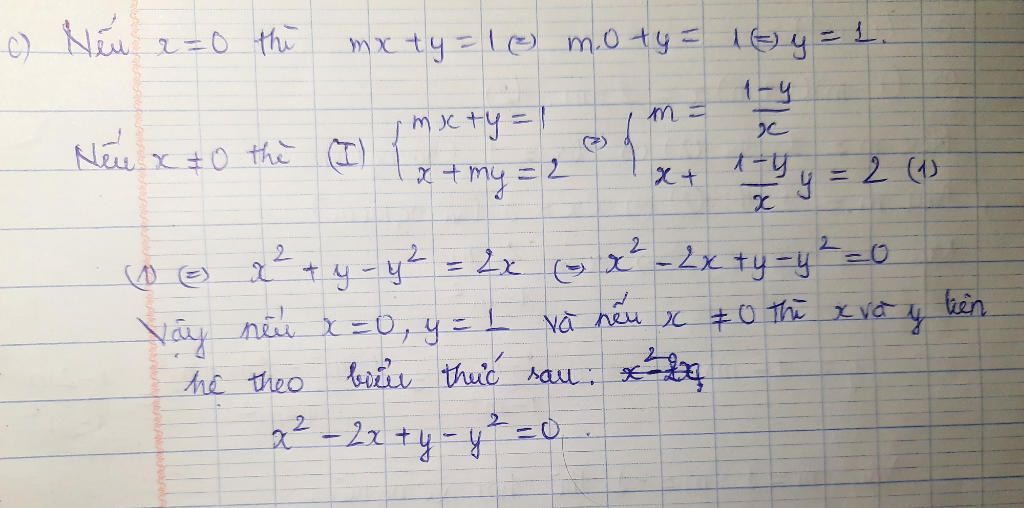 c) Nếu x = 0 thì mx + y = 1 (=) m.0 + y = 1 (=) y = 1.
Nếu x ≠ 0 thì (I) { mx + y = 1 ; x + my = 2 (=) { m = (1-y)/x ; x + (1-y)/x y = 2 (1)
(1) (=) x² + y - y² = 2x (=) x² - 2x + y - y² = 0
Vậy nếu x = 0, y = 1 và nếu x ≠ 0 thì x và y liên
hệ theo biểu thức sau:
x² - 2x + y - y² = 0.